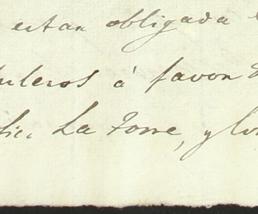 estan obligada
uleros á favor
La Torre, y los